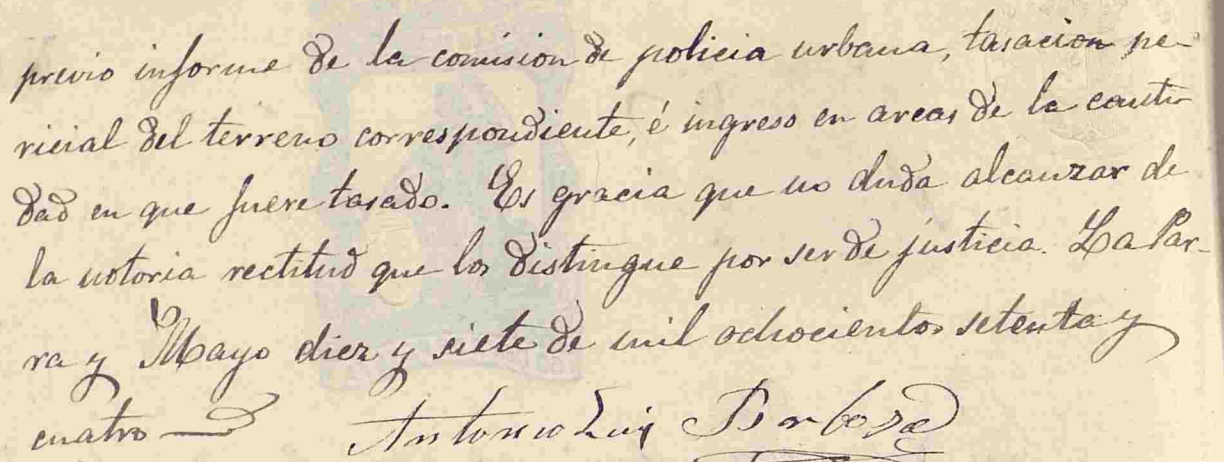 previo informe de la comision de policia urbana, tasacion pe-
ricial del terreno correspondiente, é ingreso en arcas de la canti-
dad en que fuere tasado. Es gracia que no duda alcanzar de
la notoria rectitud que los distingue por ser de justicia. La Par-
ra y Mayo diez y siete de mil ochocientos setenta y
cuatro
Antonio Luis Barboza